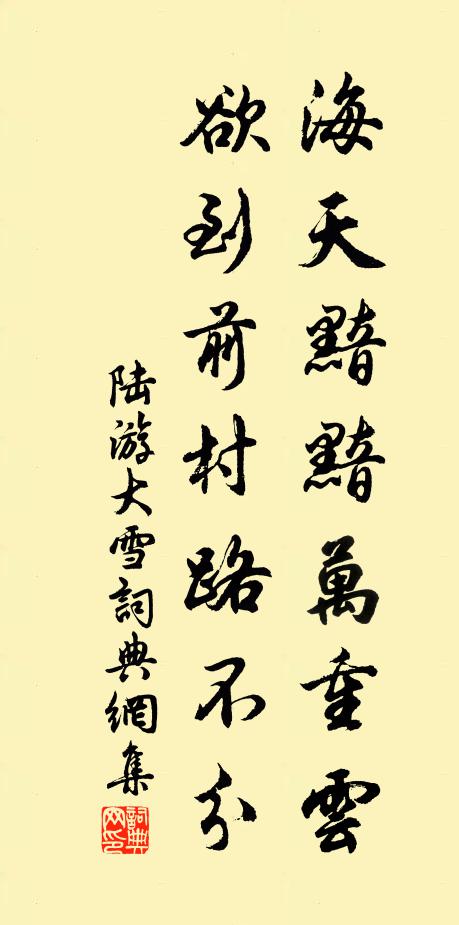 海天黯黯萬重雲
欲到前村路不分
陆游大雪詞典網集
詞典网印